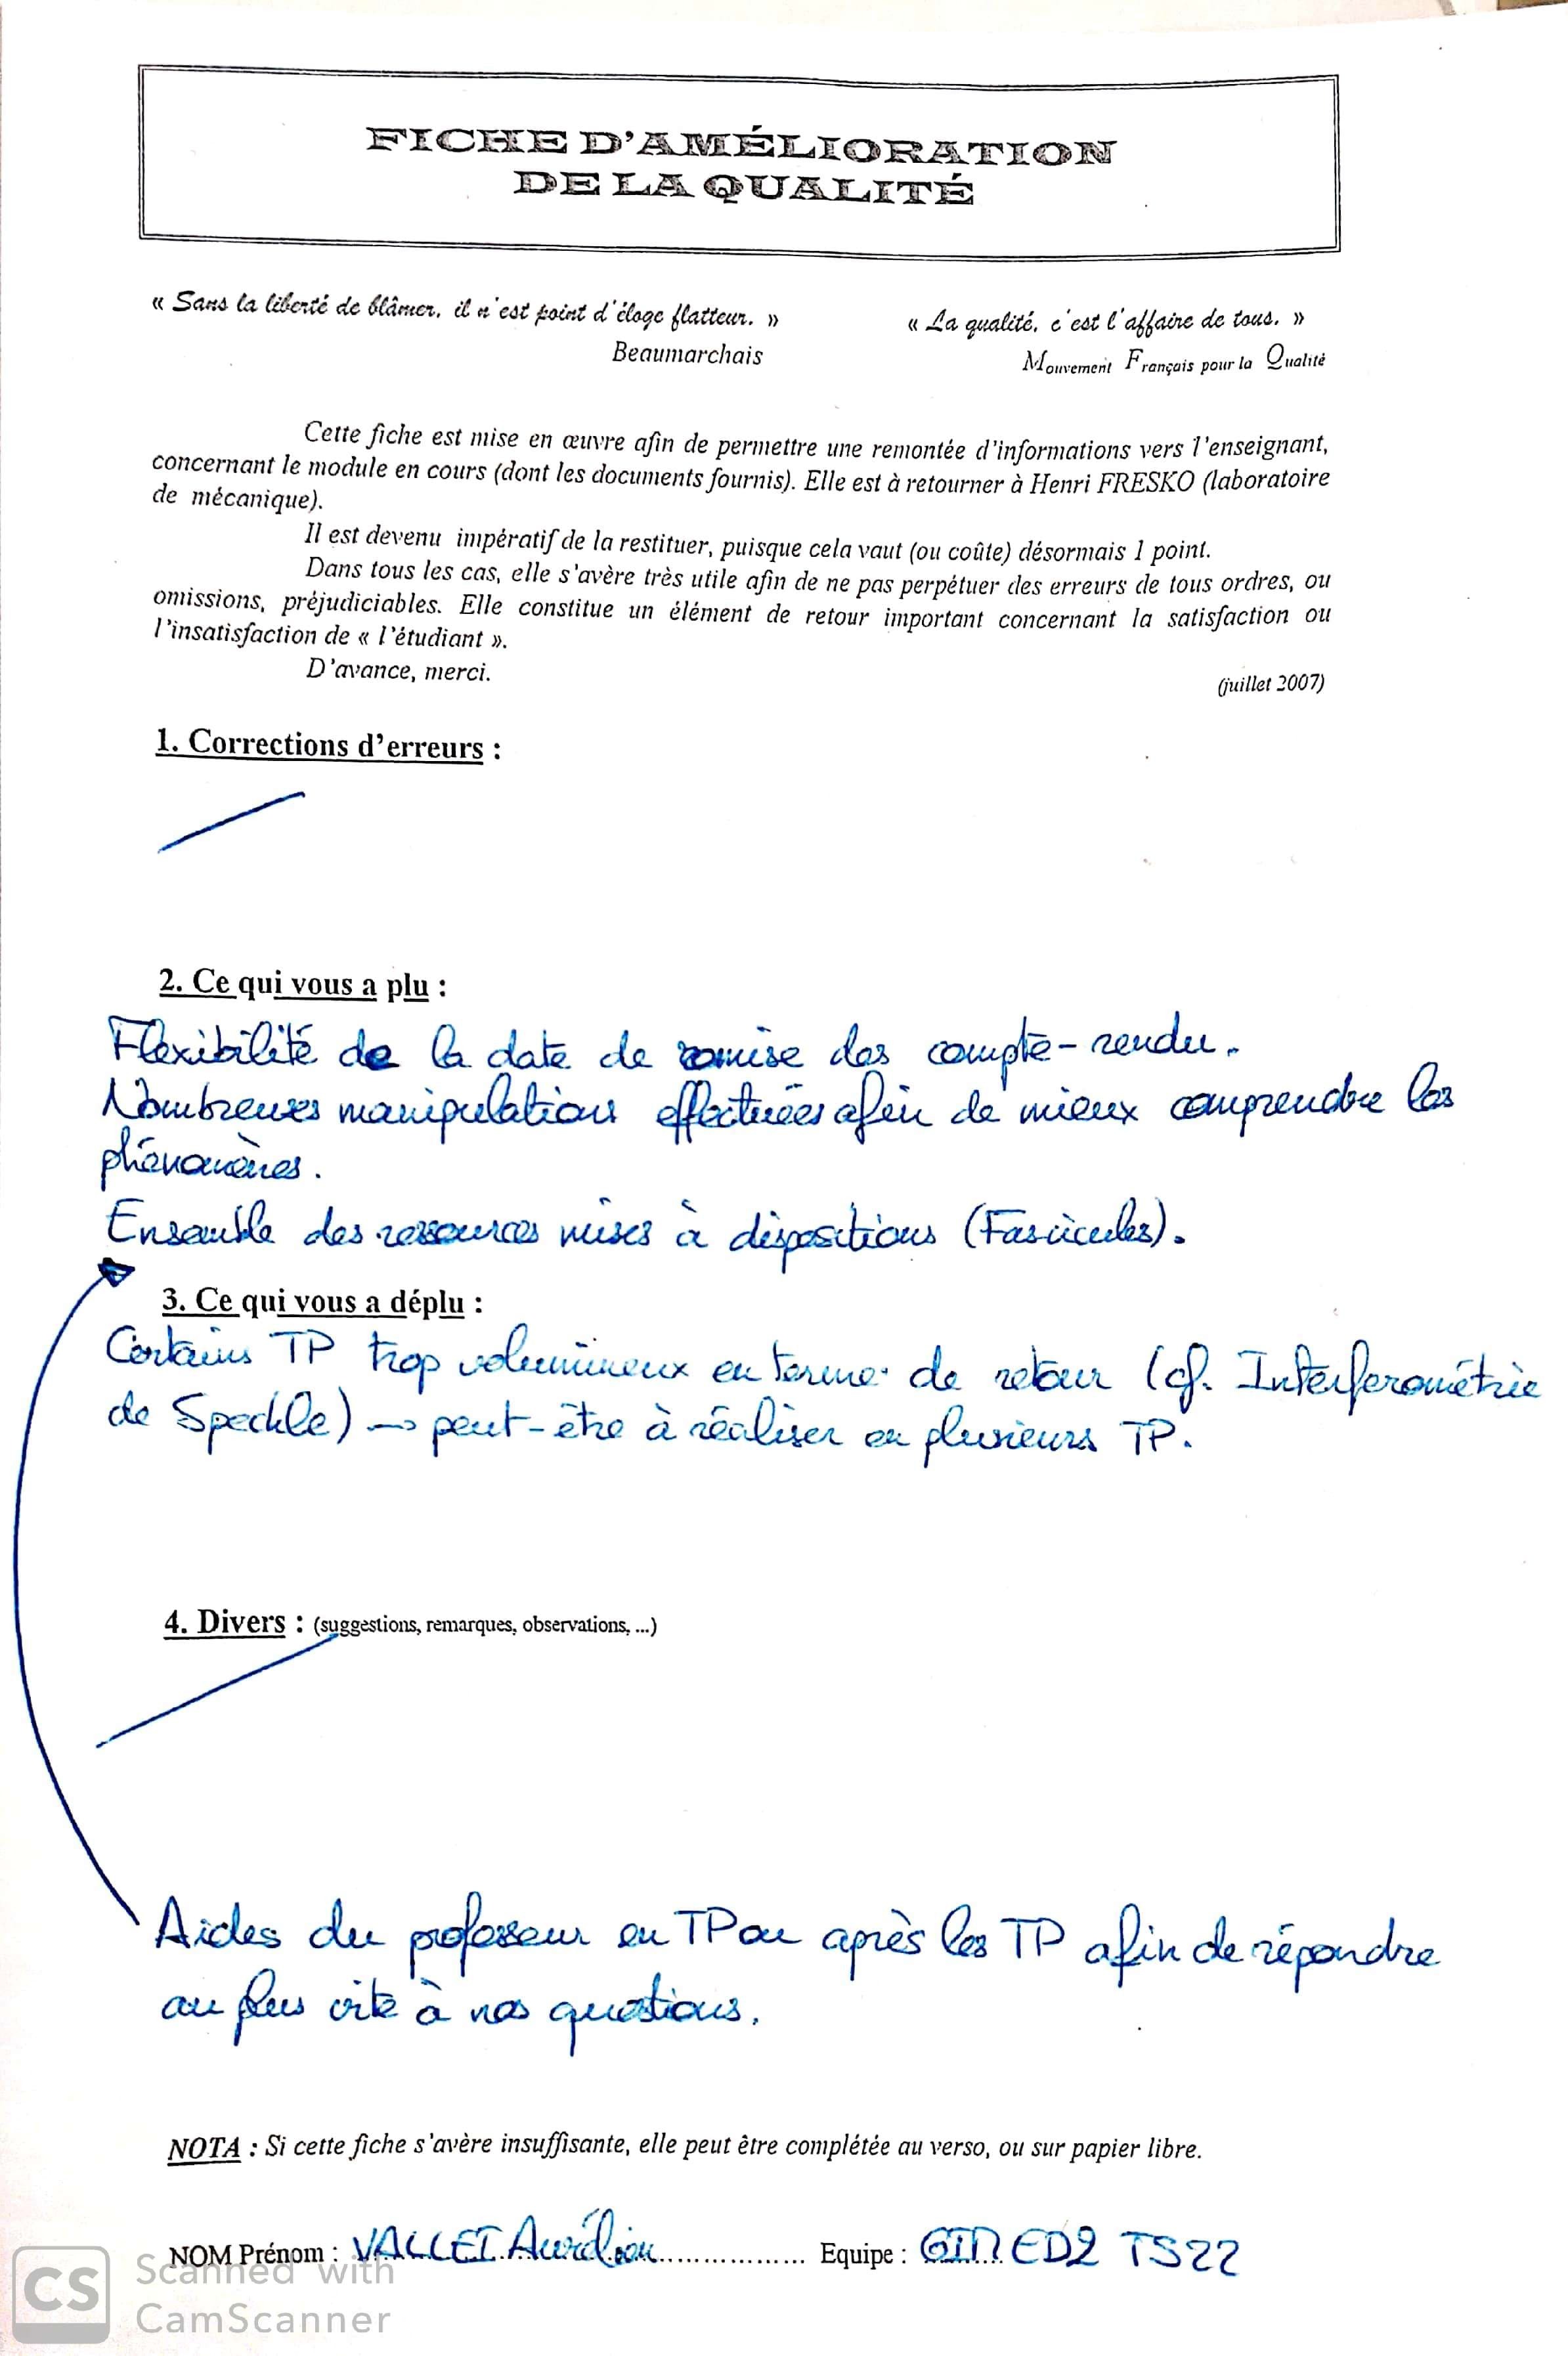 FICHE D'AMÉLIORATION
DE LA QUALITÉ
« Sans la liberté de blâmer, il n'est point d'éloge flatteur. »
Beaumarchais
« La qualité, c'est l'affaire de tous. »
Mouvement Français pour la Qualité
Cette fiche est mise en œuvre afin de permettre une remontée d'informations vers l'enseignant,
concernant le module en cours (dont les documents fournis). Elle est à retourner à Henri FRESKO (laboratoire
de mécanique).
Il est devenu impératif de la restituer, puisque cela vaut (ou coûte) désormais 1 point.
Dans tous les cas, elle s'avère très utile afin de ne pas perpétuer des erreurs de tous ordres, ou
omissions, préjudiciables. Elle constitue un élément de retour important concernant la satisfaction ou
l'insatisfaction de « l'étudiant ».
D'avance, merci.
(juillet 2007)
1. Corrections d'erreurs :
2. Ce qui vous a plu :
Flexibilité de la date de remise des compte-rendu.
Nombreuses manipulations effectuées afin de mieux comprendre les
phénomènes.
Ensemble des ressources mises à dispositions (Fascicules).
3. Ce qui vous a déplu :
Certains TP trop volumineux en terme de retour (cf. Interférométrie
de Speckle) → peut-être à réaliser en plusieurs TP.
4. Divers : (suggestions, remarques, observations, ...)
Aides du professeur en TP ou après les TP afin de répondre
au plus vite à nos questions.
NOTA : Si cette fiche s'avère insuffisante, elle peut être complétée au verso, ou sur papier libre.
NOM Prénom : VALLET Aurélien Equipe : ED2 TS22
CS Scanned with
CamScanner